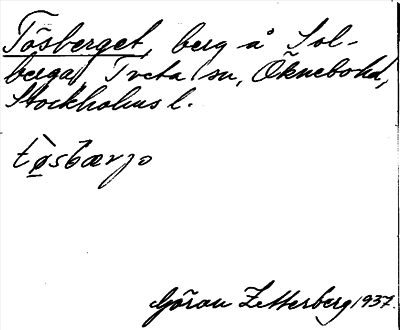 Tösberget, berg å Sol-
berga, Tveta sn, Öknebohd,
Stockholms l.
tø̀sbærjo
Göran Zetterberg 1937.